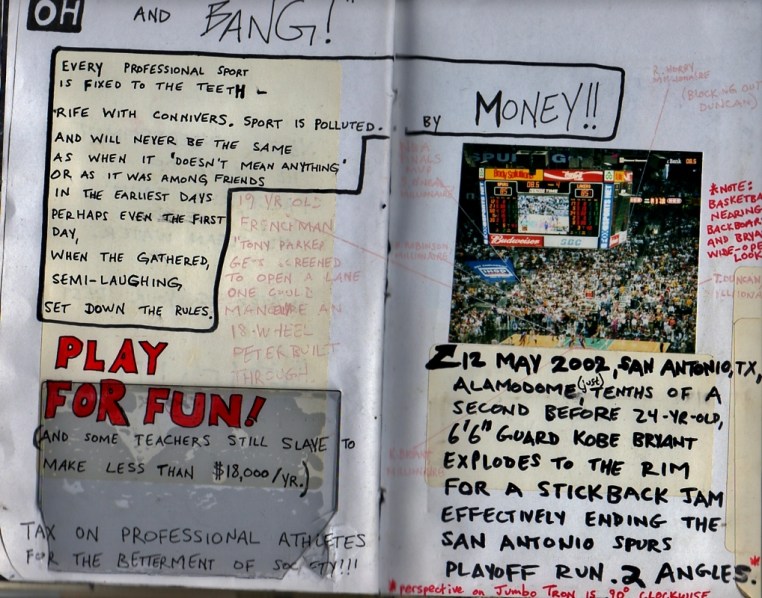 OH AND BANG!"
EVERY PROFESSIONAL SPORT
IS FIXED TO THE TEETH -
RIFE WITH CONNIVERS. SPORT IS POLLUTED.
AND WILL NEVER BE THE SAME
AS WHEN IT "DOESN'T MEAN ANYTHING"
OR AS IT WAS AMONG FRIENDS
IN THE EARLIEST DAYS
PERHAPS EVEN THE FIRST
DAY,
WHEN THE GATHERED,
SEMI-LAUGHING,
SET DOWN THE RULES.
19 YR OLD
FRENCHMAN
"TONY PARKER
GETS SCREENED
TO OPEN A LANE
ONE COULD
AN
18-WHEEL
PETERBUILT
THROUGH.
PLAY
FOR FUN!
(AND SOME TEACHERS STILL SLAVE TO
MAKE LESS THAN $18,000/YR.)
TAX ON PROFESSIONAL ATHLETES
FOR THE BETTERMENT OF SOCIETY!!!
BY MONEY!!
R. HORRY
(BLOCKING OUT
DUNCAN)
NBA
FINALS
MVP
*NOTE:
BASKETBA
NEARING
BACKBOAR
AND BRYA
WIDE-OPE
LOOK
T. DUNCAN
Budweiser
SBC
12 MAY 2002, SAN ANTONIO, TX,
ALAMODOME, (just) TENTHS OF A
SECOND BEFORE 24-YR-OLD,
6'6" GUARD KOBE BRYANT
EXPLODES TO THE RIM
FOR A STICKBACK JAM
EFFECTIVELY ENDING THE
SAN ANTONIO SPURS
PLAYOFF RUN. 2 ANGLES.*
*perspective on JUMBO TRON IS 90° CLOCKWISE